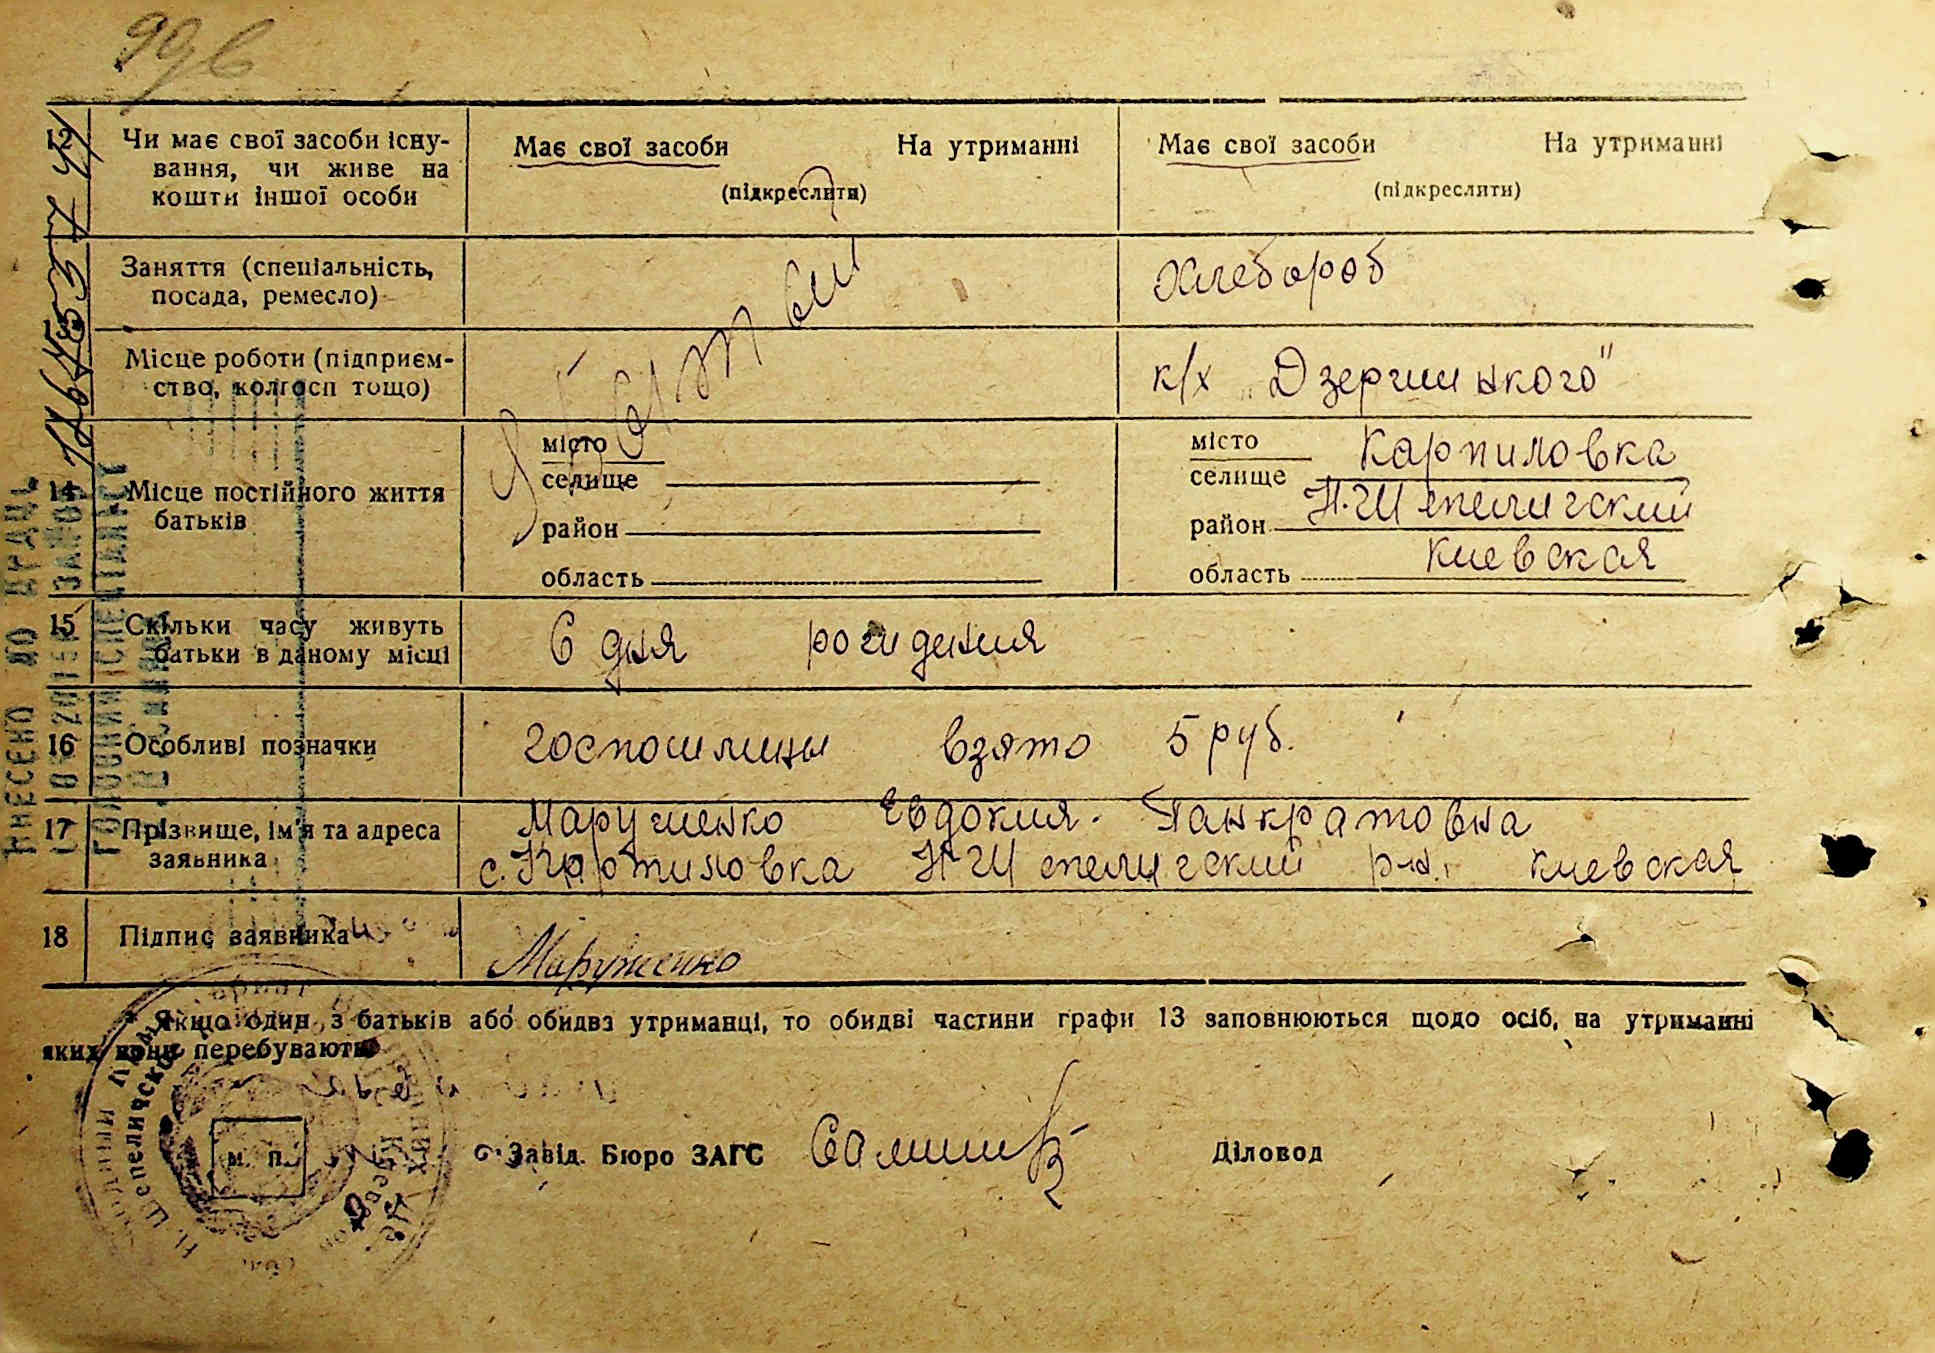 99б
12 Чи має свої засоби існу-
вання, чи живе на
кошти іншої особи
Має свої засоби На утриманні
(підкреслити)
Має свої засоби На утриманні
(підкреслити)
Заняття (спеціальність,
посада, ремесло)
Хлебороб
Місце роботи (підприєм-
ство, колгосп тощо)
к/х „Дзержинського"
14 Місце постійного життя
батьків
місто
селище
район
область
місто
селище Карпиловка
район Н.Шепеличский
область Киевская
15 Скільки часу живуть
батьки в даному місці
С дня рождения
16 Особливі позначки
госпошлины взято 5 руб.
17 Прізвище, ім'я та адреса
заявника
Марученко Евдокия Панкратовна
с. Карпиловка Н-Шепеличский р-н. Киевская
18 Підпис заявника
Марученко
Якщо один з батьків або обидва утриманці, то обидві частини графи 13 заповнюються щодо осіб, на утриманні
яких вони перебувають
М. П.
Завід. Бюро ЗАГС
Діловод
ВНЕСЕНО ДО ДРАЦС
ГОЛОВНИЙ СПЕЦІАЛІСТ